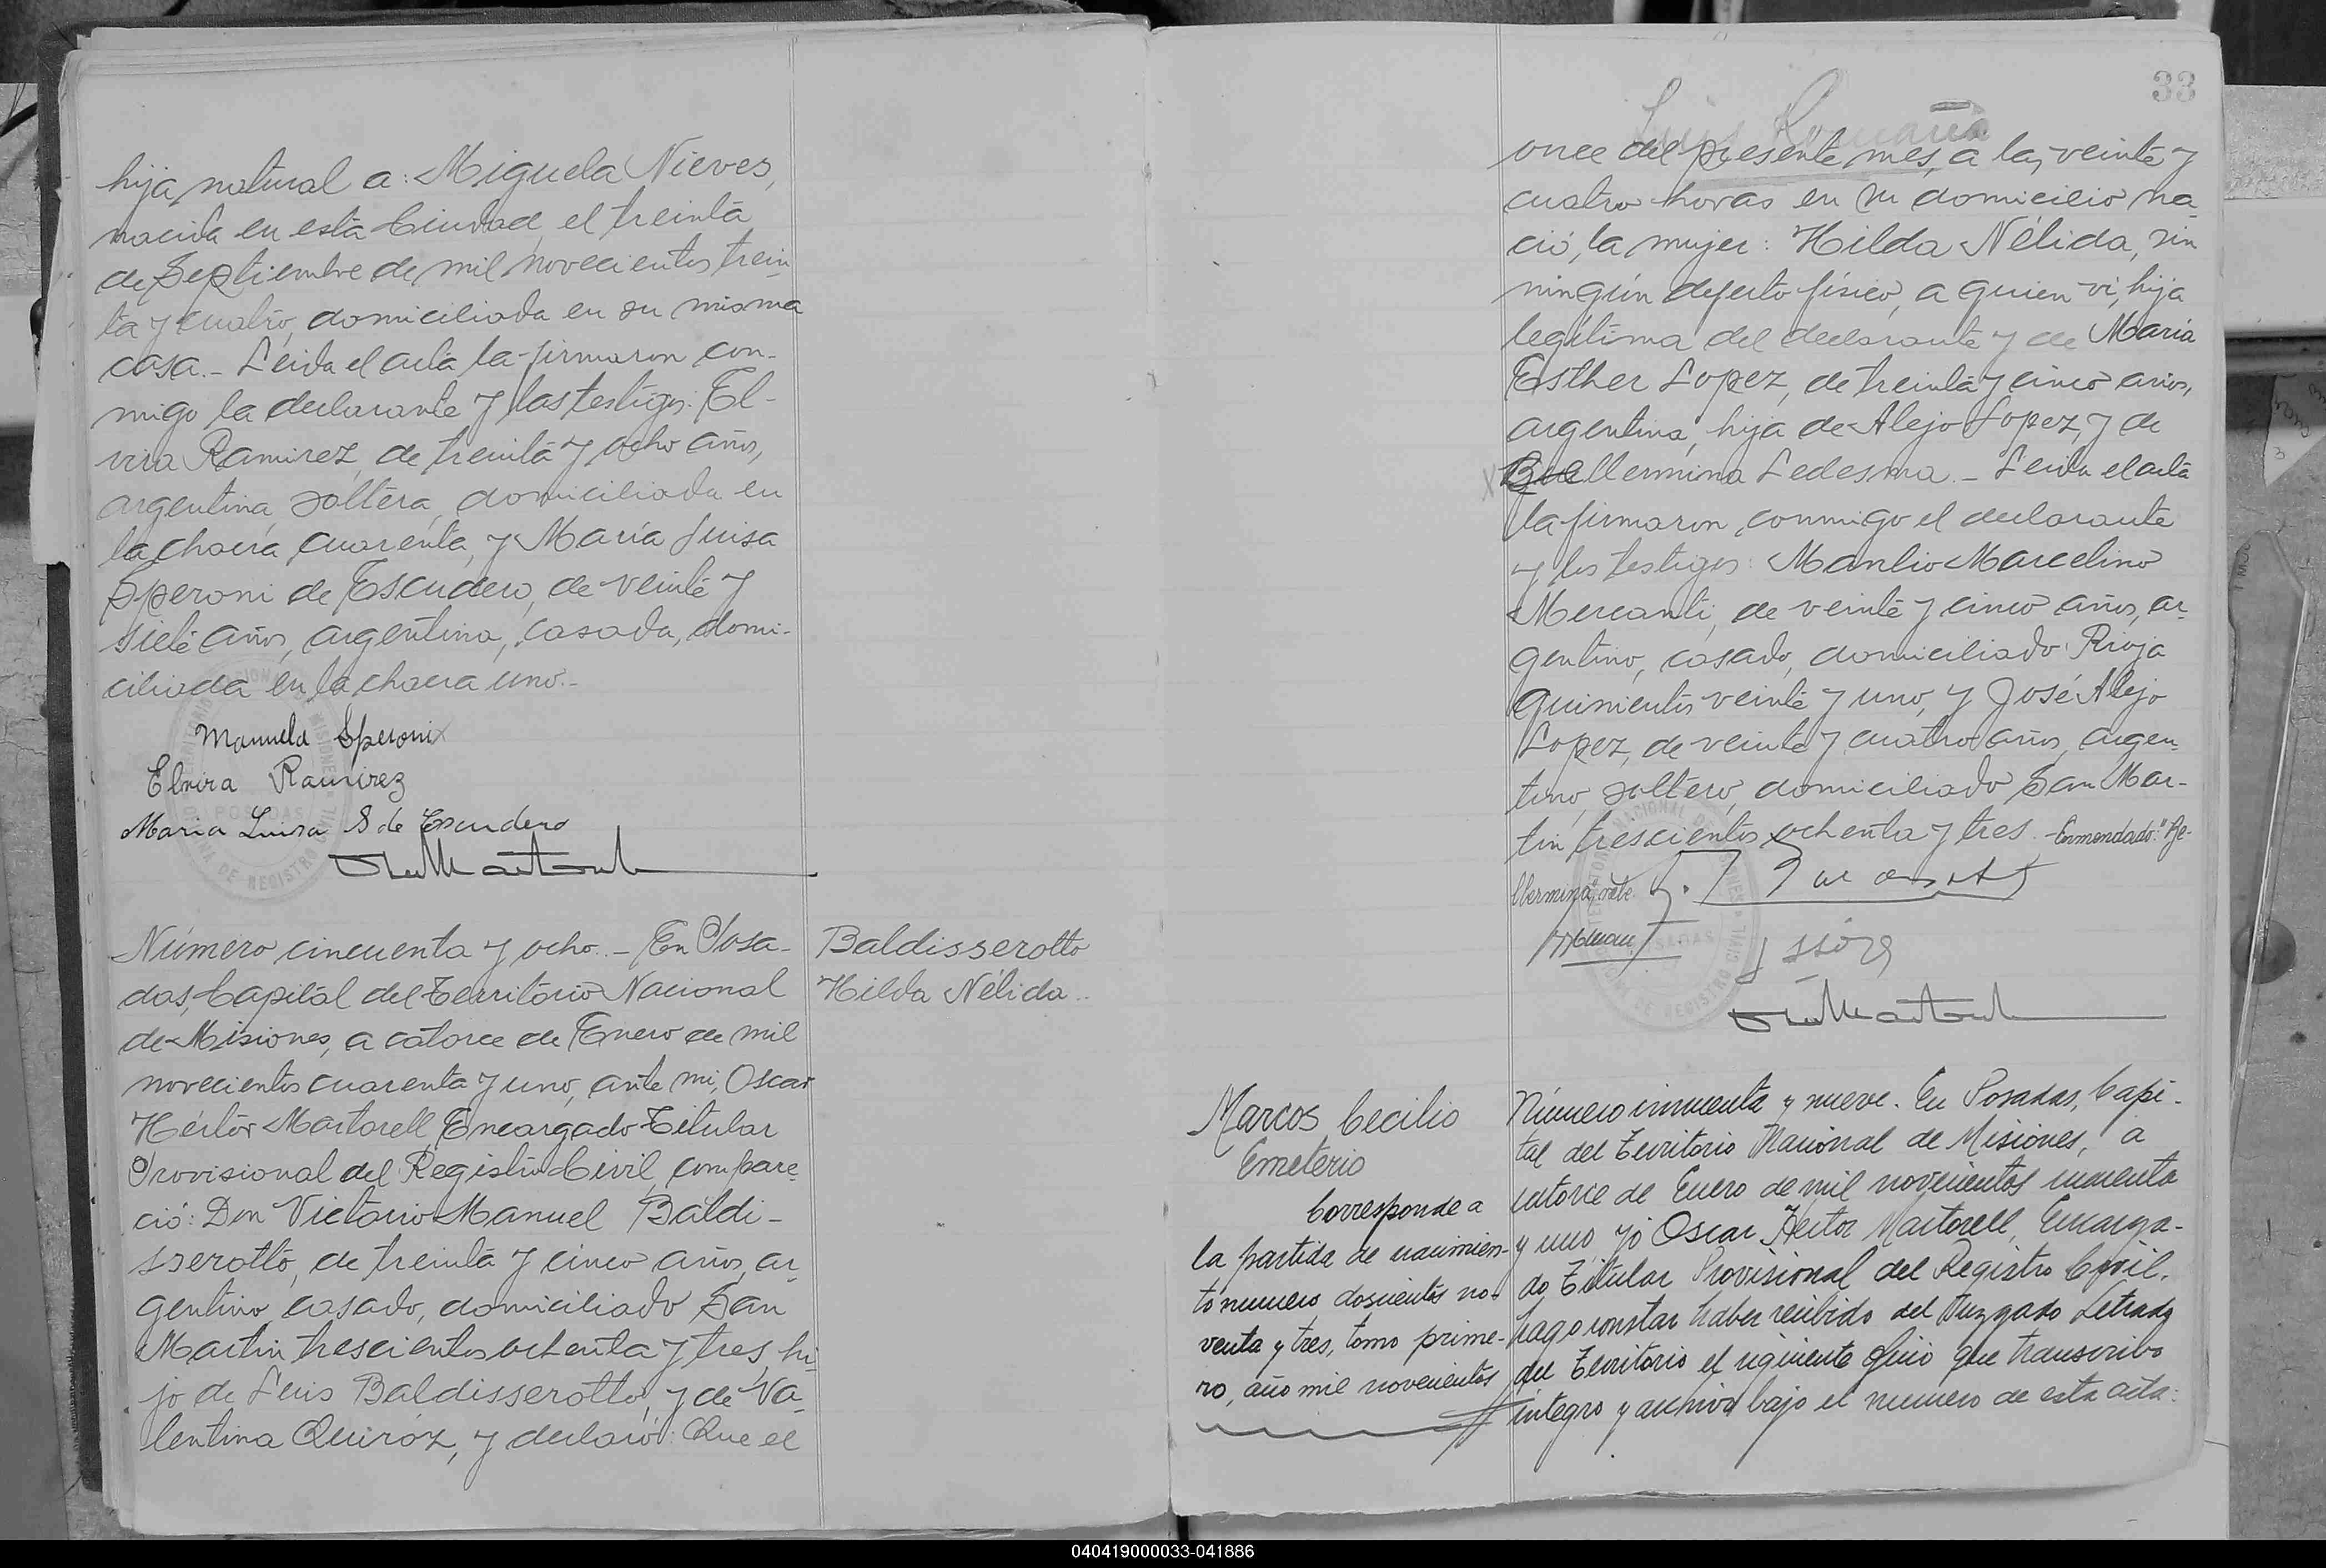 hija natural a: Miguela Nieves,
nacida en esta Ciudad, el treinta
de Septiembre de mil novecientos trein
ta y cuatro, domiciliada en su misma
casa.- Leida el acta la firmaron con-
migo la declarante y las testigos: El-
vira Ramirez, de treinta y ocho años,
argentina, soltera, domiciliada en
la chacra cuarenta, y María Luisa
Speroni de Escudero, de veinte y
siete años, argentina, casada, domi-
ciliada en la chacra uno.-
Manuela Speroni
Elvira Ramirez
Maria Luisa S de Escudero
Número cincuenta y ocho.- En Posa-
das, Capital del Territorio Nacional
de Misiones, a catorce de Enero de mil
novecientos cuarenta y uno, ante mi, Oscar
Héctor Martorell, Encargado Titular
Provisional del Registro Civil, compare
ció: Don Victorio Manuel Baldi-
sserotto, de treinta y cinco años, ar
gentino, casado, domiciliado San
Martin trescientos ochenta y tres, hi
jo de Luis Baldisserotto, y de Va
lentina Quiróz, y declaró: Que el
Baldisserotto
Hilda Nélida.
33
once del presente mes, a las veinte y
cuatro horas en su domicilio na
ció, la mujer: Hilda Nélida, sin
ningún defecto físico, a quien vi, hija
legítima del declarante y de María
Esther Lopez, de treinta y cinco años,
argentina, hija de Alejo Lopez, y de
llermina Ledesma.- Leida el acta
la firmaron conmigo el declarante
y los testigos: Manlio Marcelino
Mercanti, de veinte y cinco años, ar
gentino, casado, domiciliado Rioja
quinientos veinte y uno, y José Alejo
Lopez, de veinte y cuatro años, argen
tino, soltero, domiciliado San Mar-
tin trescientos ochenta y tres.- Enmendado:
llermina, vale.
Marcos Cecilio
Emeterio
Corresponde a
la partida de nacimien-
to numero doscientos no-
venta y tres, tomo prime-
ro, año mil novecientos
Número cincuenta y nueve. En Posadas, Capi-
tal del Territorio Nacional de Misiones, a
catorce de Enero de mil novecientos cuarenta
y uno yo Oscar Héctor Martorell, Encarga-
do Titular Provisional del Registro Civil.
hago constar haber recibido del Juzgado Letrado
del Territorio el siguiente oficio que transcribo
integro y archivo bajo el numero de esta acta:
040419000033-041886